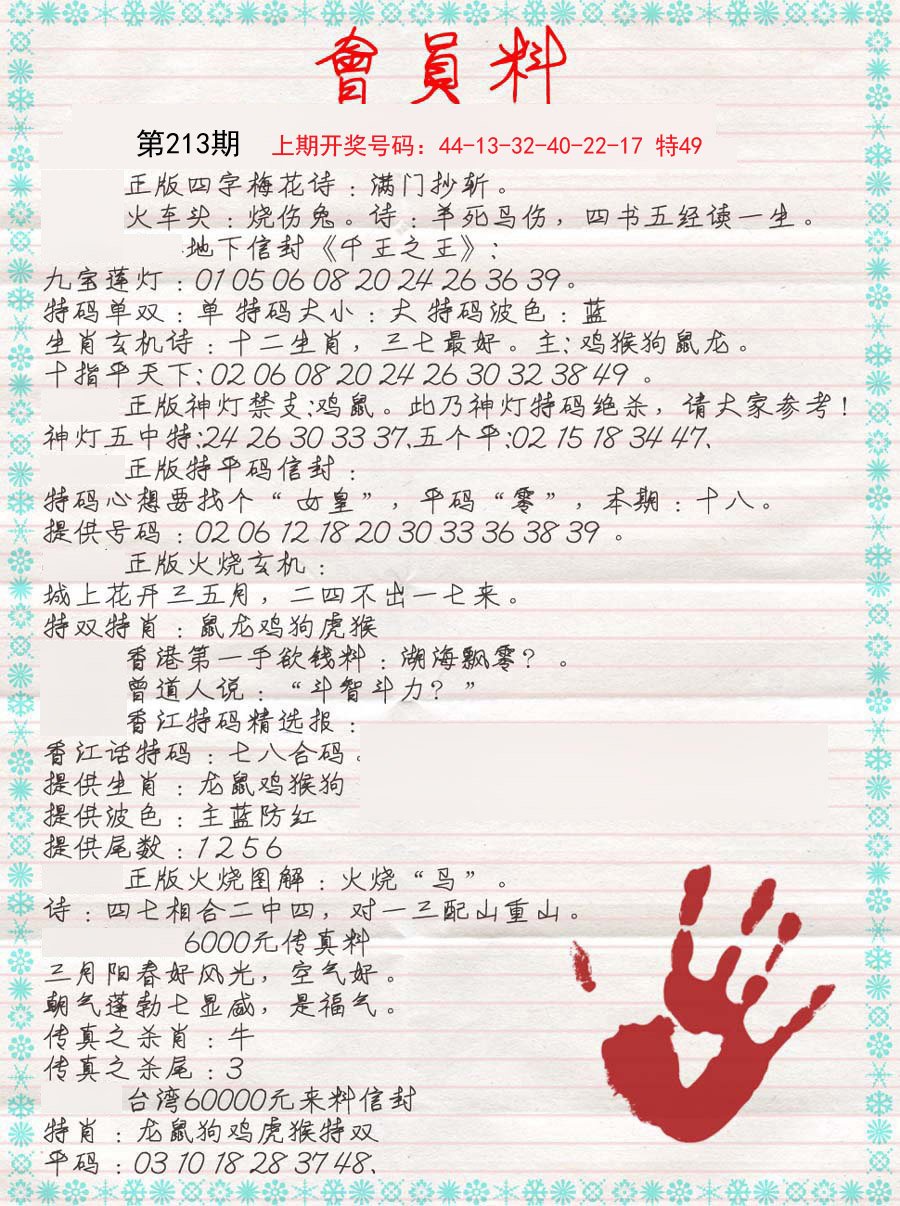 會員料
第213期 上期开奖号码：44-13-32-40-22-17 特49
正版四字梅花诗：满门抄斩。
火车头：烧伤兔。诗：羊死鸟伤，四书五经读一生。
地下信封《千王之王》：
九宝莲灯：01 05 06 08 20 24 26 36 39。
特码单双：单 特码大小：大 特码波色：蓝
生肖玄机诗：十二生肖，三七最好。主：鸡猴狗鼠龙。
十指平天下：02 06 08 20 24 26 30 32 38 49 。
正版神灯禁支：鸡鼠。此乃神灯特码绝杀，请大家参考！
神灯五中特：24 26 30 33 37.五个平：02 15 18 34 47.
正版特平码信封：
特码心想要找个“ 女皇”，平码“零”，本期：十八。
提供号码：02 06 12 18 20 30 33 36 38 39 。
正版火烧玄机：
城上花开三五月，二四不出一七来。
特双特肖：鼠龙鸡狗虎猴
香港第一手欲钱料：湖海飘零？。
曾道人说：“斗智斗力？”
香江特码精选报：
香江话特码：七八合码。
提供生肖：龙鼠鸡猴狗
提供波色：主蓝防红
提供尾数：1 2 5 6
正版火烧图解：火烧“鸟”。
诗：四七相合二中四，对一三配山重山。
6000元传真料
三月阳春好风光，空气好。
朝气蓬勃七显威，是福气。
传真之杀肖：牛
传真之杀尾：3
台湾60000元来料信封
特肖：龙鼠狗鸡虎猴特双
平码：03 10 18 28 37 48.